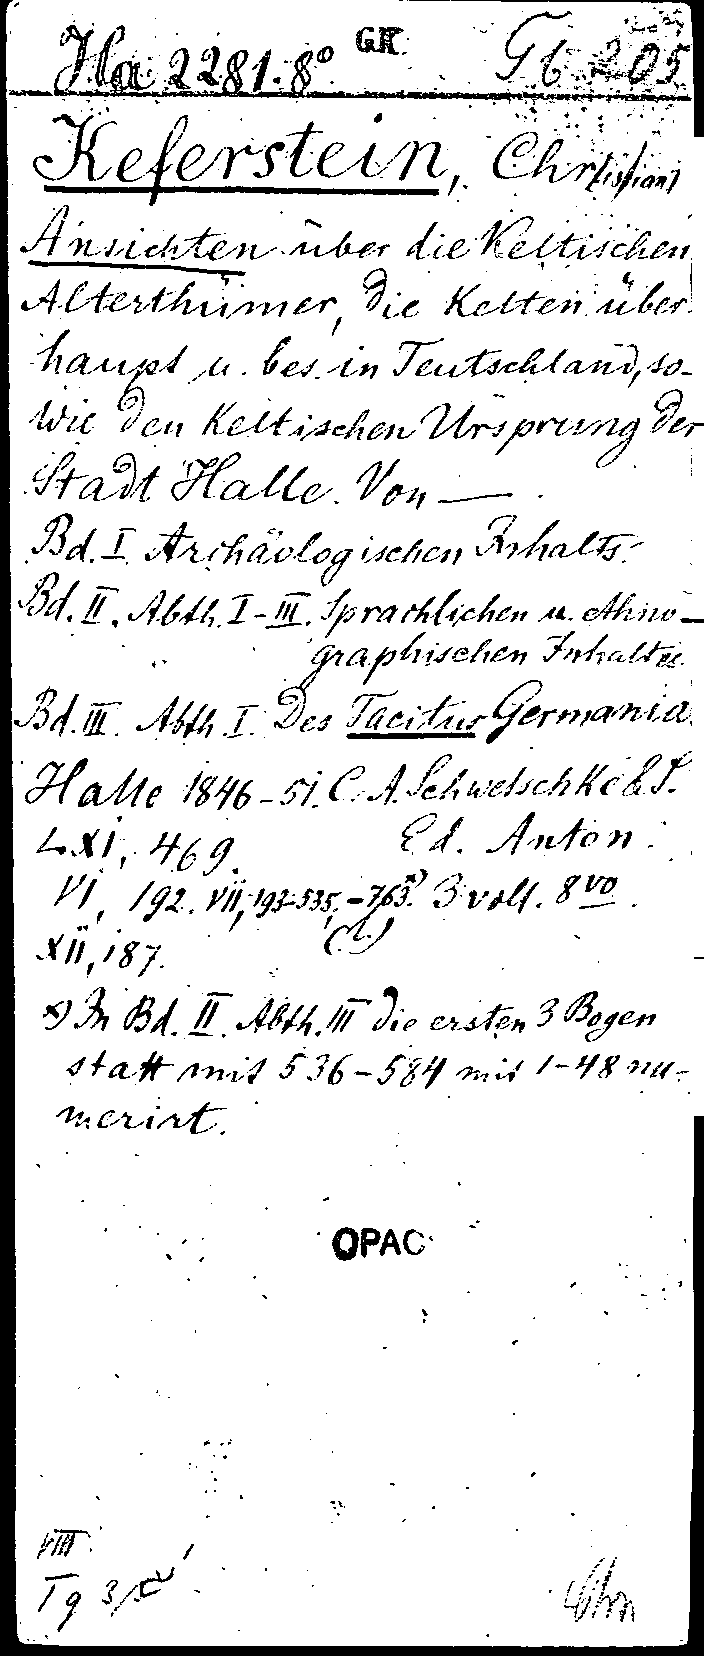 Ha 2281.8° GK Gb 205
Keferstein, Chr[istian]
Ansichten über die Keltischen
Alterthümer, die Kelten über
haupt u. bes. in Teutschland, so-
wie den Keltischen Ursprung der
Stadt Halle. Von —.
Bd. I. Archäologischen Inhalts.
Bd. II. Abth. I-III. Sprachlichen u. ethno-
graphischen Inhaltes.
Bd. III. Abth. I. Des Tacitus Germania.
Halle 1846-51. C. A. Schwetschke & S.
LXI, 469. Ed. Anton.
VI, 192. VII, 193-535, -763.*) 3 voll. 8vo.
XII, 187.
*) In Bd. II. Abth. III die ersten 3 Bogen
statt mit 536-584 mit 1-48 nu-
merirt.
OPAC
VIII
Tg